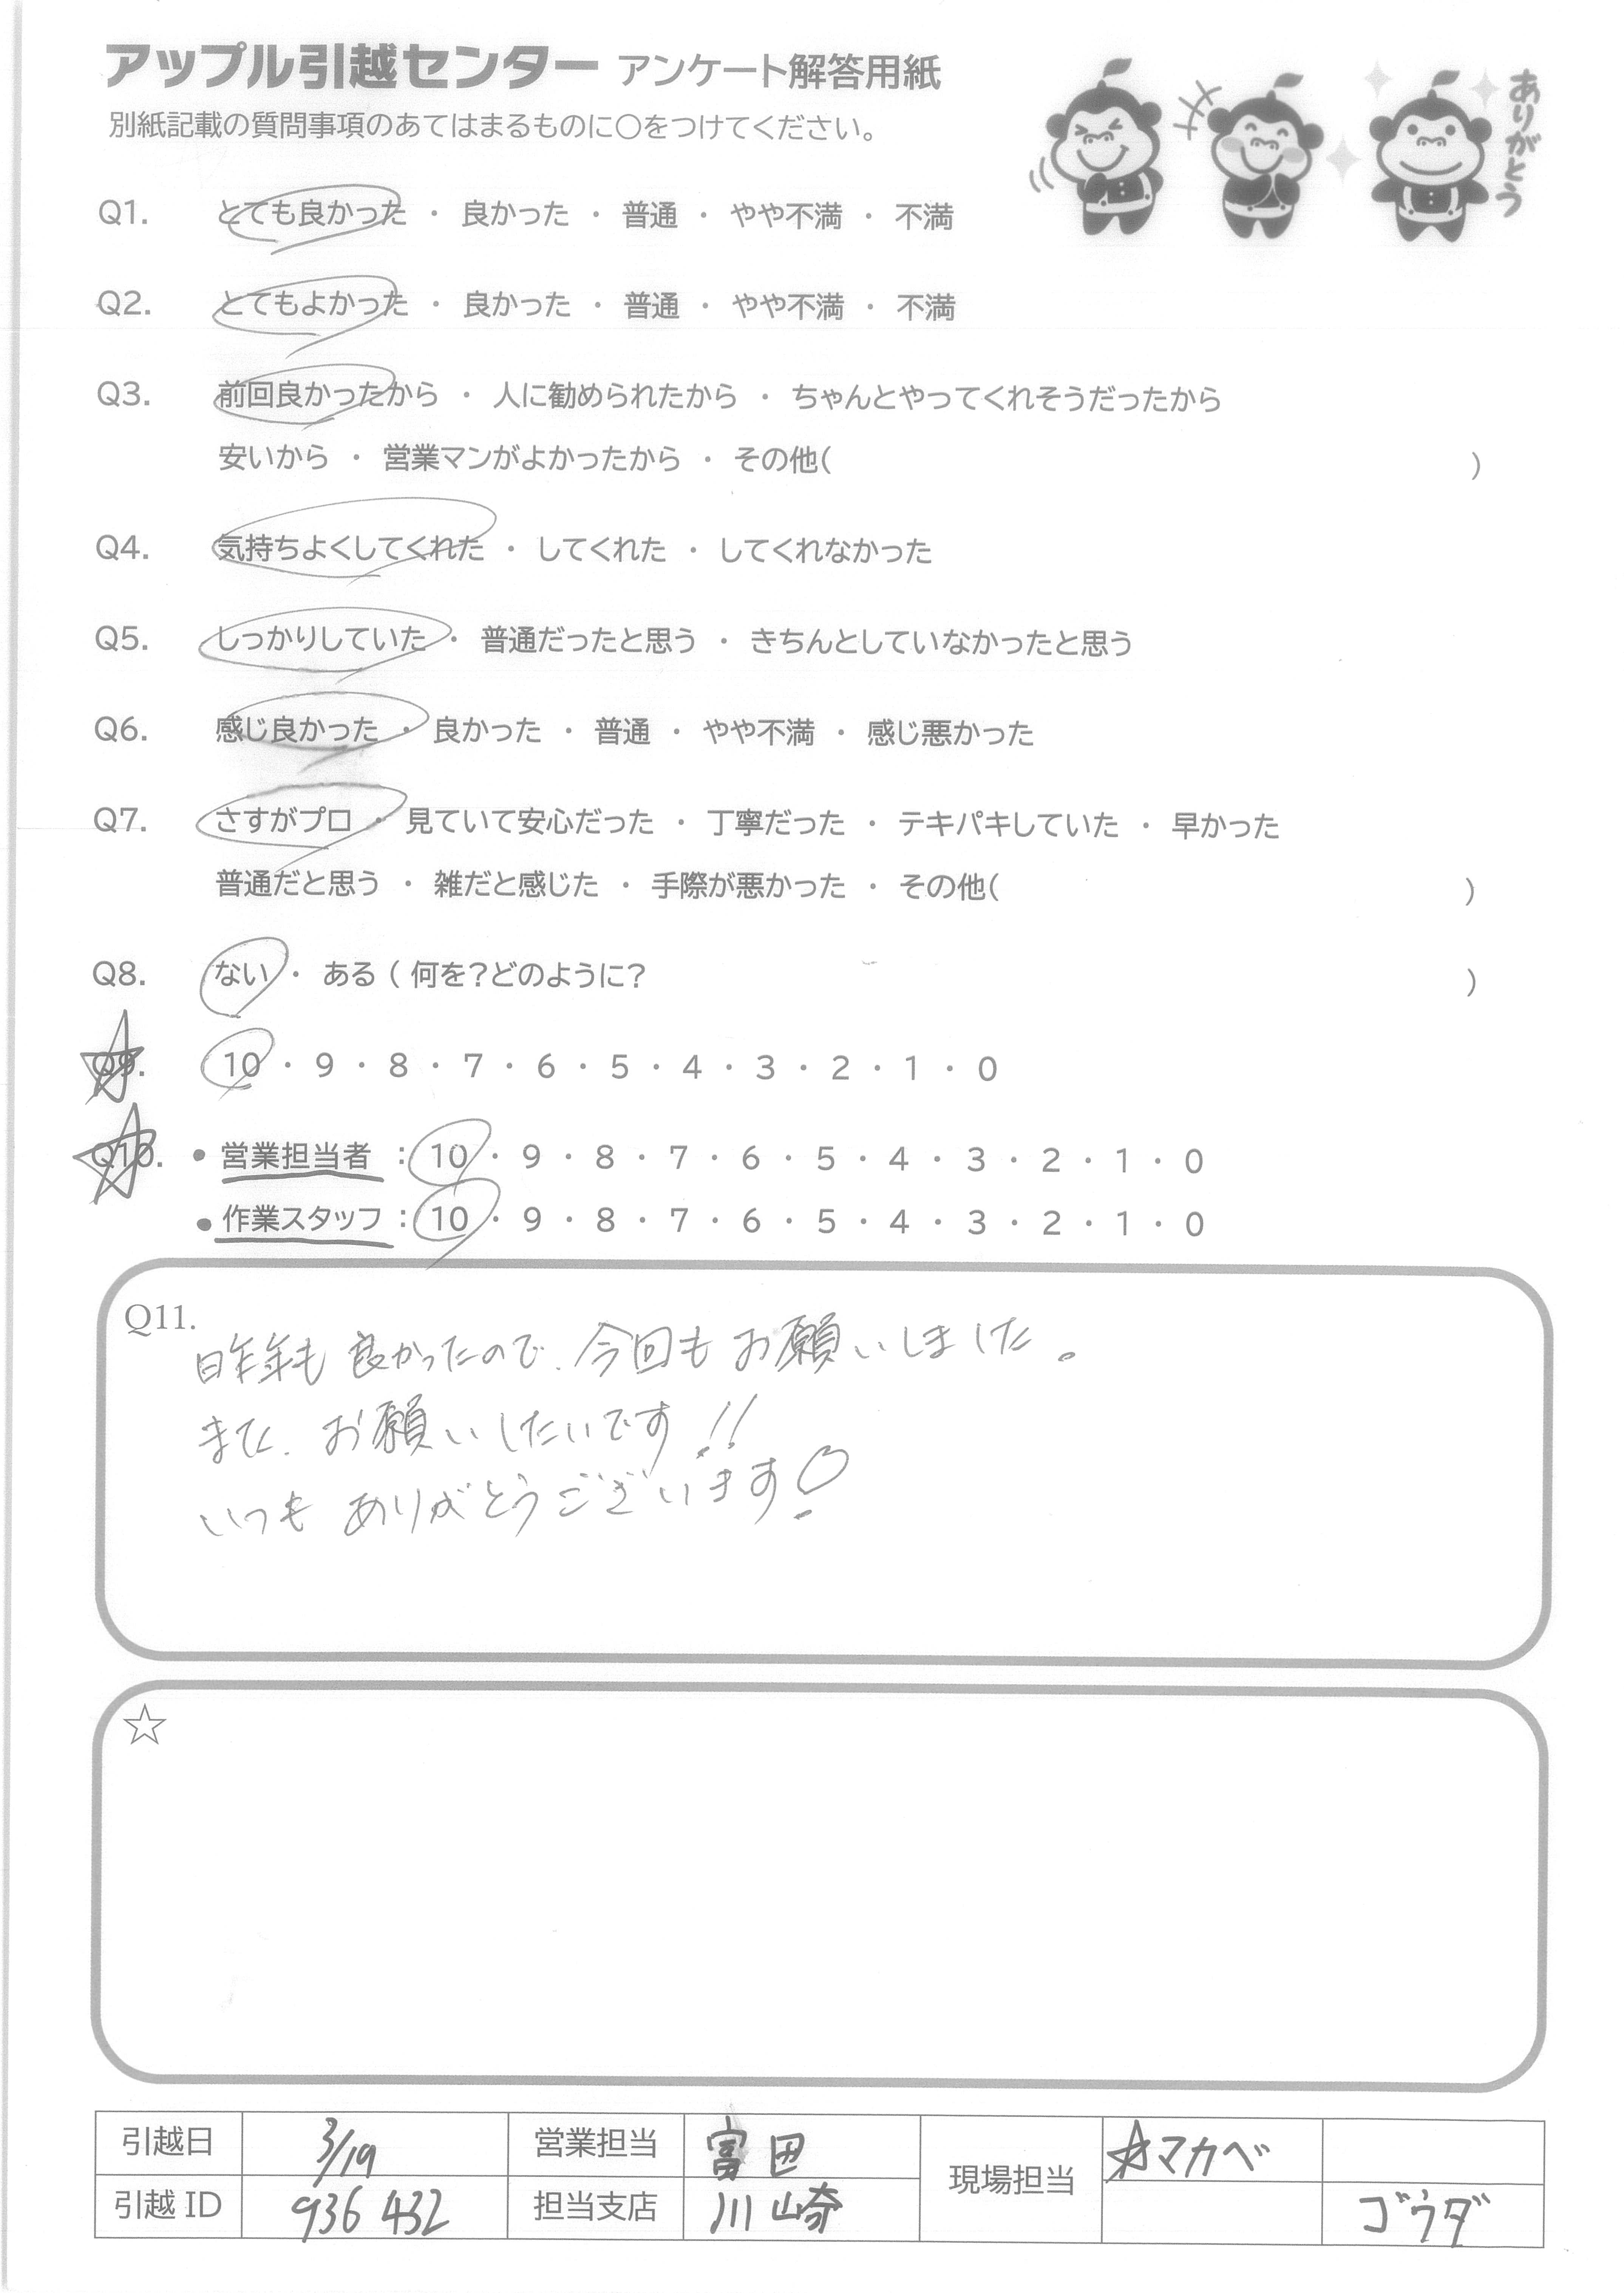 アップル引越センター アンケート解答用紙
ありがとう
別紙記載の質問事項のあてはまるものに○をつけてください。
Q1. とても良かった ・ 良かった ・ 普通 ・ やや不満 ・ 不満
Q2. とてもよかった ・ 良かった ・ 普通 ・ やや不満 ・ 不満
Q3. 前回良かったから ・ 人に勧められたから ・ ちゃんとやってくれそうだったから
安いから ・ 営業マンがよかったから ・ その他( )
Q4. 気持ちよくしてくれた ・ してくれた ・ してくれなかった
Q5. しっかりしていた ・ 普通だったと思う ・ きちんとしていなかったと思う
Q6. 感じ良かった ・ 良かった ・ 普通 ・ やや不満 ・ 感じ悪かった
Q7. さすがプロ ・ 見ていて安心だった ・ 丁寧だった ・ テキパキしていた ・ 早かった
普通だと思う ・ 雑だと感じた ・ 手際が悪かった ・ その他( )
Q8. ない ・ ある ( 何を?どのように? )
Q9. 10 ・ 9 ・ 8 ・ 7 ・ 6 ・ 5 ・ 4 ・ 3 ・ 2 ・ 1 ・ 0
Q10. ● 営業担当者 : 10 ・ 9 ・ 8 ・ 7 ・ 6 ・ 5 ・ 4 ・ 3 ・ 2 ・ 1 ・ 0
● 作業スタッフ : 10 ・ 9 ・ 8 ・ 7 ・ 6 ・ 5 ・ 4 ・ 3 ・ 2 ・ 1 ・ 0
Q11.
昨年も良かったので、今回もお願いしました。
また、お願いしたいです!!
いつもありがとうございます!
☆
引越日 3/19 営業担当 富田 現場担当 ☆マカベ
引越ID 936 432 担当支店 川崎 ゴウダ